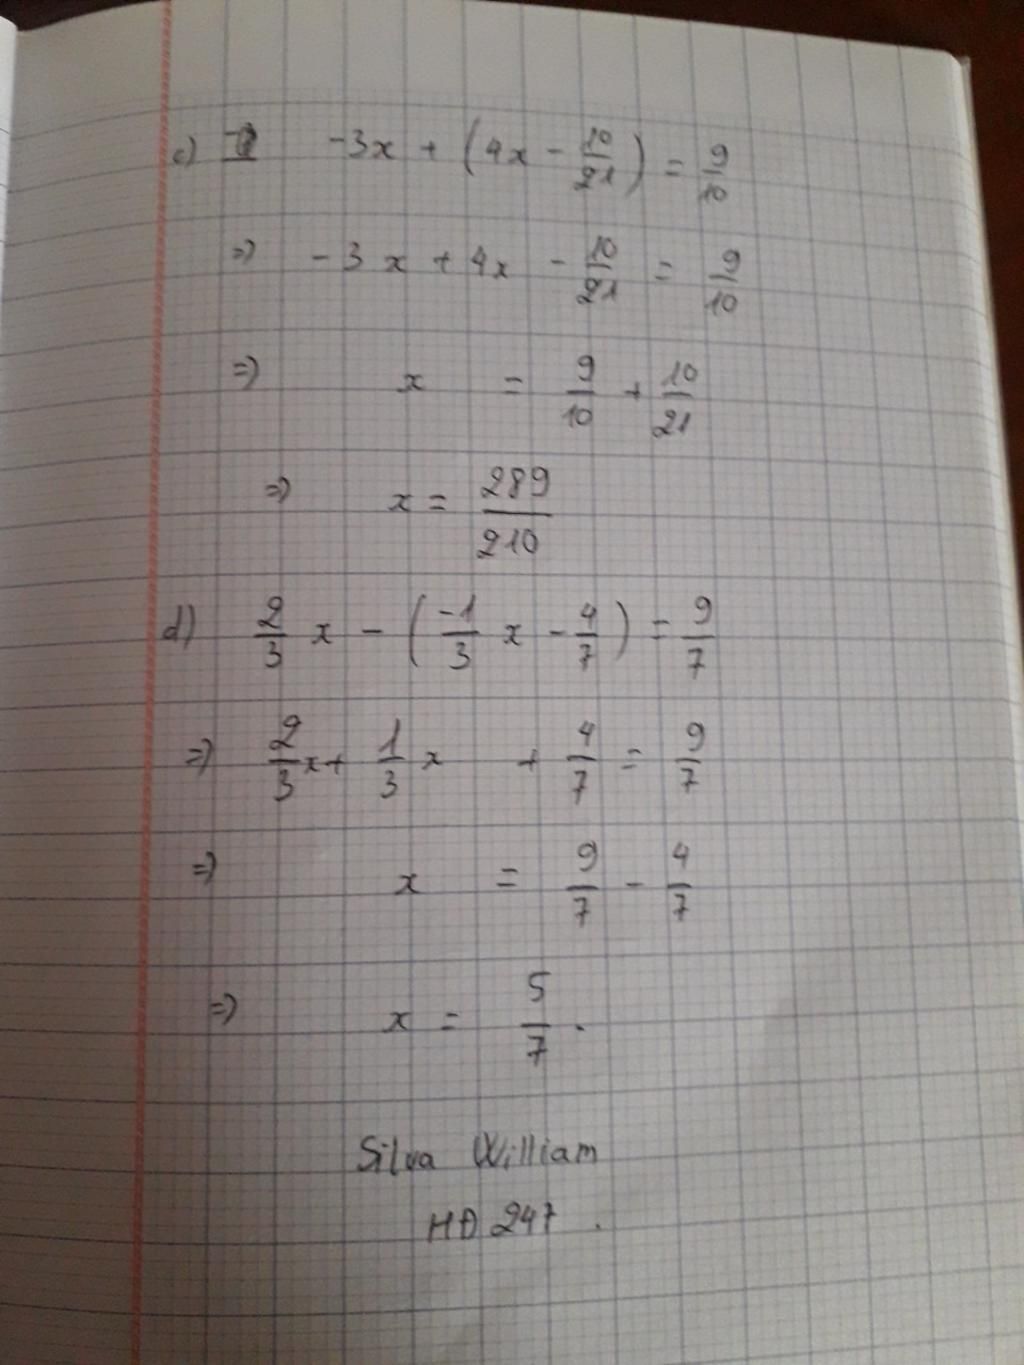 c) -3x + (4x - 10/21) = 9/10
=) -3x + 4x - 10/21 = 9/10
=) x = 9/10 + 10/21
=) x = 289/210
d) 2/3 x - (-1/3 x - 4/7) = 9/7
=) 2/3 x + 1/3 x + 4/7 = 9/7
=) x = 9/7 - 4/7
=) x = 5/7 .
Silva William
HĐ 247 .